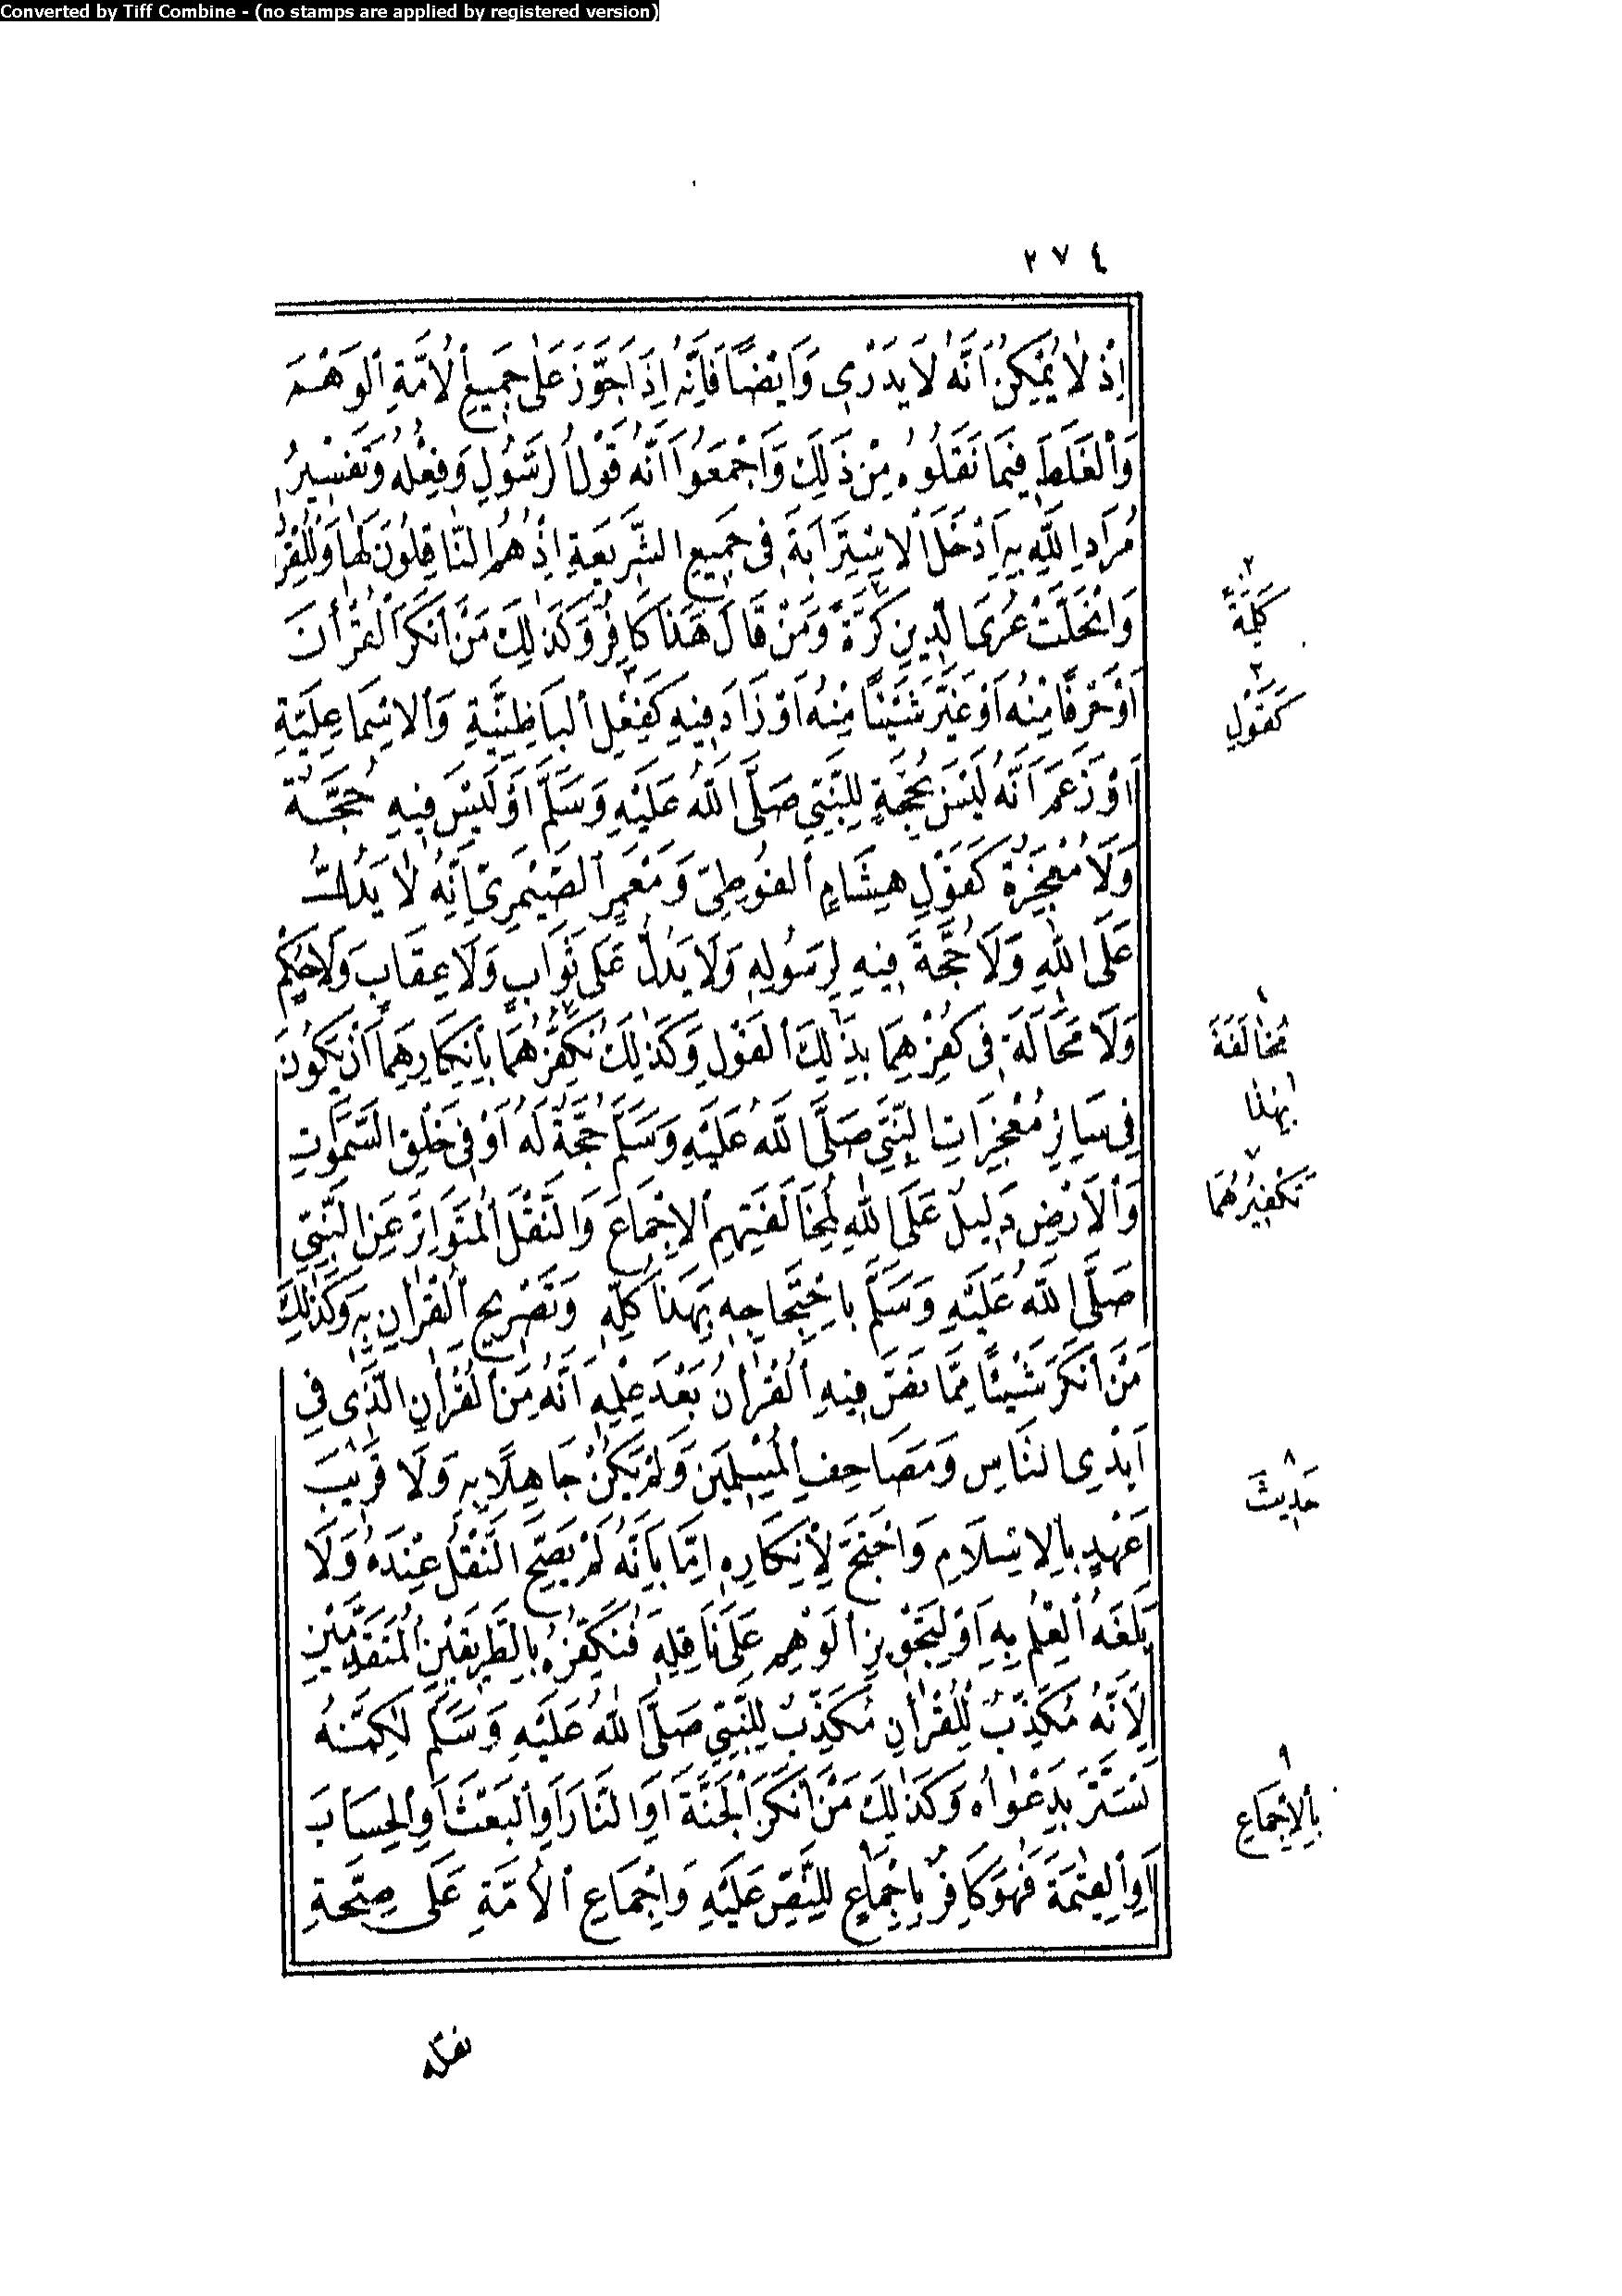 Converted by Tiff Combine - (no stamps are applied by registered version)
٢٧٤
اِذْ لَا يُمْكِنُ اَنَّهُ لَا يَدْرِى وَاَيْضًا فَاِنَّهُ اِذَا جَوَّزَ عَلٰى جَمِيعِ الْاُمَّةِ الْوَهْمَ
وَالْغَلَطَ فِيمَا نَقَلُوهُ مِنْ ذَلِكَ وَاَجْمَعُوا اَنَّهُ قَوْلُ الرَّسُولِ وَفِعْلُهُ وَتَفْسِيرُ
مُرَادِ اللّٰهِ بِهِ اَدْخَلَ الْاِسْتِرَابَةَ فِى جَمِيعِ الشَّرِيعَةِ اِذْ هُمُ النَّاقِلُونَ لَهَا وَلِلْقُرْ
وَانْحَلَّتْ عُرَى الدِّينِ كَرَّةً وَمَنْ قَالَ هَذَا كَافِرٌ وَكَذٰلِكَ مَنْ اَنْكَرَ الْقُرْاٰنَ
اَوْ حَرْفًا مِنْهُ اَوْ غَيَّرَ شَيْئًا مِنْهُ اَوْ زَادَ فِيهِ كَفِعْلِ الْبَاطِنِيَّةِ وَالْاِسْمَاعِيلِيَّةِ
اَوْ زَعَمَ اَنَّهُ لَيْسَ بِحُجَّةٍ لِلنَّبِىِّ صَلَّى اللّٰهُ عَلَيْهِ وَسَلَّمَ اَوْ لَيْسَ فِيهِ حُجَّةٌ
وَلَا مُعْجِزَةٌ كَقَوْلِ هِشَامٍ الْفُوطِىِّ وَمَعْمَرٍ الصَّيْمَرِىِّ اِنَّهُ لَا يَدُلُّ
عَلَى اللّٰهِ وَلَا حُجَّةَ فِيهِ لِرَسُولِهِ وَلَا يَدُلُّ عَلَى ثَوَابٍ وَلَا عِقَابٍ وَلَا حُكْمٍ
وَلَا مَحَالَةَ فِى كُفْرِهِمَا بِذٰلِكَ الْقَوْلِ وَكَذٰلِكَ نُكَفِّرُهُمَا بِاِنْكَارِهِمَا اَنْ يَكُونَ
فِى سَائِرِ مُعْجِزَاتِ النَّبِىِّ صَلَّى اللّٰهُ عَلَيْهِ وَسَلَّمَ حُجَّةٌ لَهُ اَوْ فِى خَلْقِ السَّمٰوَاتِ
وَالْاَرْضِ دَلِيلٌ عَلَى اللّٰهِ لِمُخَالَفَتِهِمِ الْاِجْمَاعَ وَالنَّقْلَ الْمُتَوَاتِرَ عَنِ النَّبِىِّ
صَلَّى اللّٰهُ عَلَيْهِ وَسَلَّمَ بِاحْتِجَاجِهِ بِهَذَا كُلِّهِ وَتَصْرِيحِ الْقُرْاٰنِ بِهِ وَكَذٰلِكَ
مَنْ اَنْكَرَ شَيْئًا مِمَّا نَصَّ فِيهِ الْقُرْاٰنُ بَعْدَ عِلْمِهِ اَنَّهُ مِنَ الْقُرْاٰنِ الَّذِى فِى
اَيْدِى النَّاسِ وَمَصَاحِفِ الْمُسْلِمِينَ وَلَمْ يَكُنْ جَاهِلًا بِهِ وَلَا قَرِيبَ
عَهْدٍ بِالْاِسْلَامِ وَاحْتَجَّ لِاِنْكَارِهِ اِمَّا بِاَنَّهُ لَمْ يَصِحَّ النَّقْلُ عِنْدَهُ وَلَا
بَلَغَهُ الْعِلْمُ بِهِ اَوْ لِتَجْوِيزِ الْوَهْمِ عَلَى نَاقِلِهِ فَنُكَفِّرُهُ بِالطَّرِيقَيْنِ الْمُتَقَدِّمَيْنِ
لِاَنَّهُ مُكَذِّبٌ لِلْقُرْاٰنِ مُكَذِّبٌ لِلنَّبِىِّ صَلَّى اللّٰهُ عَلَيْهِ وَسَلَّمَ لٰكِنَّهُ
تَسَتَّرَ بِدَعْوَاهُ وَكَذٰلِكَ مَنْ اَنْكَرَ الْجَنَّةَ اَوِ النَّارَ اَوِ الْبَعْثَ اَوِ الْحِسَابَ
اَوِ الْقِيٰمَةَ فَهُوَ كَافِرٌ بِاِجْمَاعٍ لِلنَّصِّ عَلَيْهِ وَاِجْمَاعِ الْاُمَّةِ عَلَى صِحَّةِ
نقله
٢
كَلِمَةً
٣
كَقَوْلِ
٤
مُخَالَفَةَ
بِهٰذَا
٧
تَكْفِيرُهُمَا
٨
حَدِيثَ
٩
بِالْاِجْمَاعِ